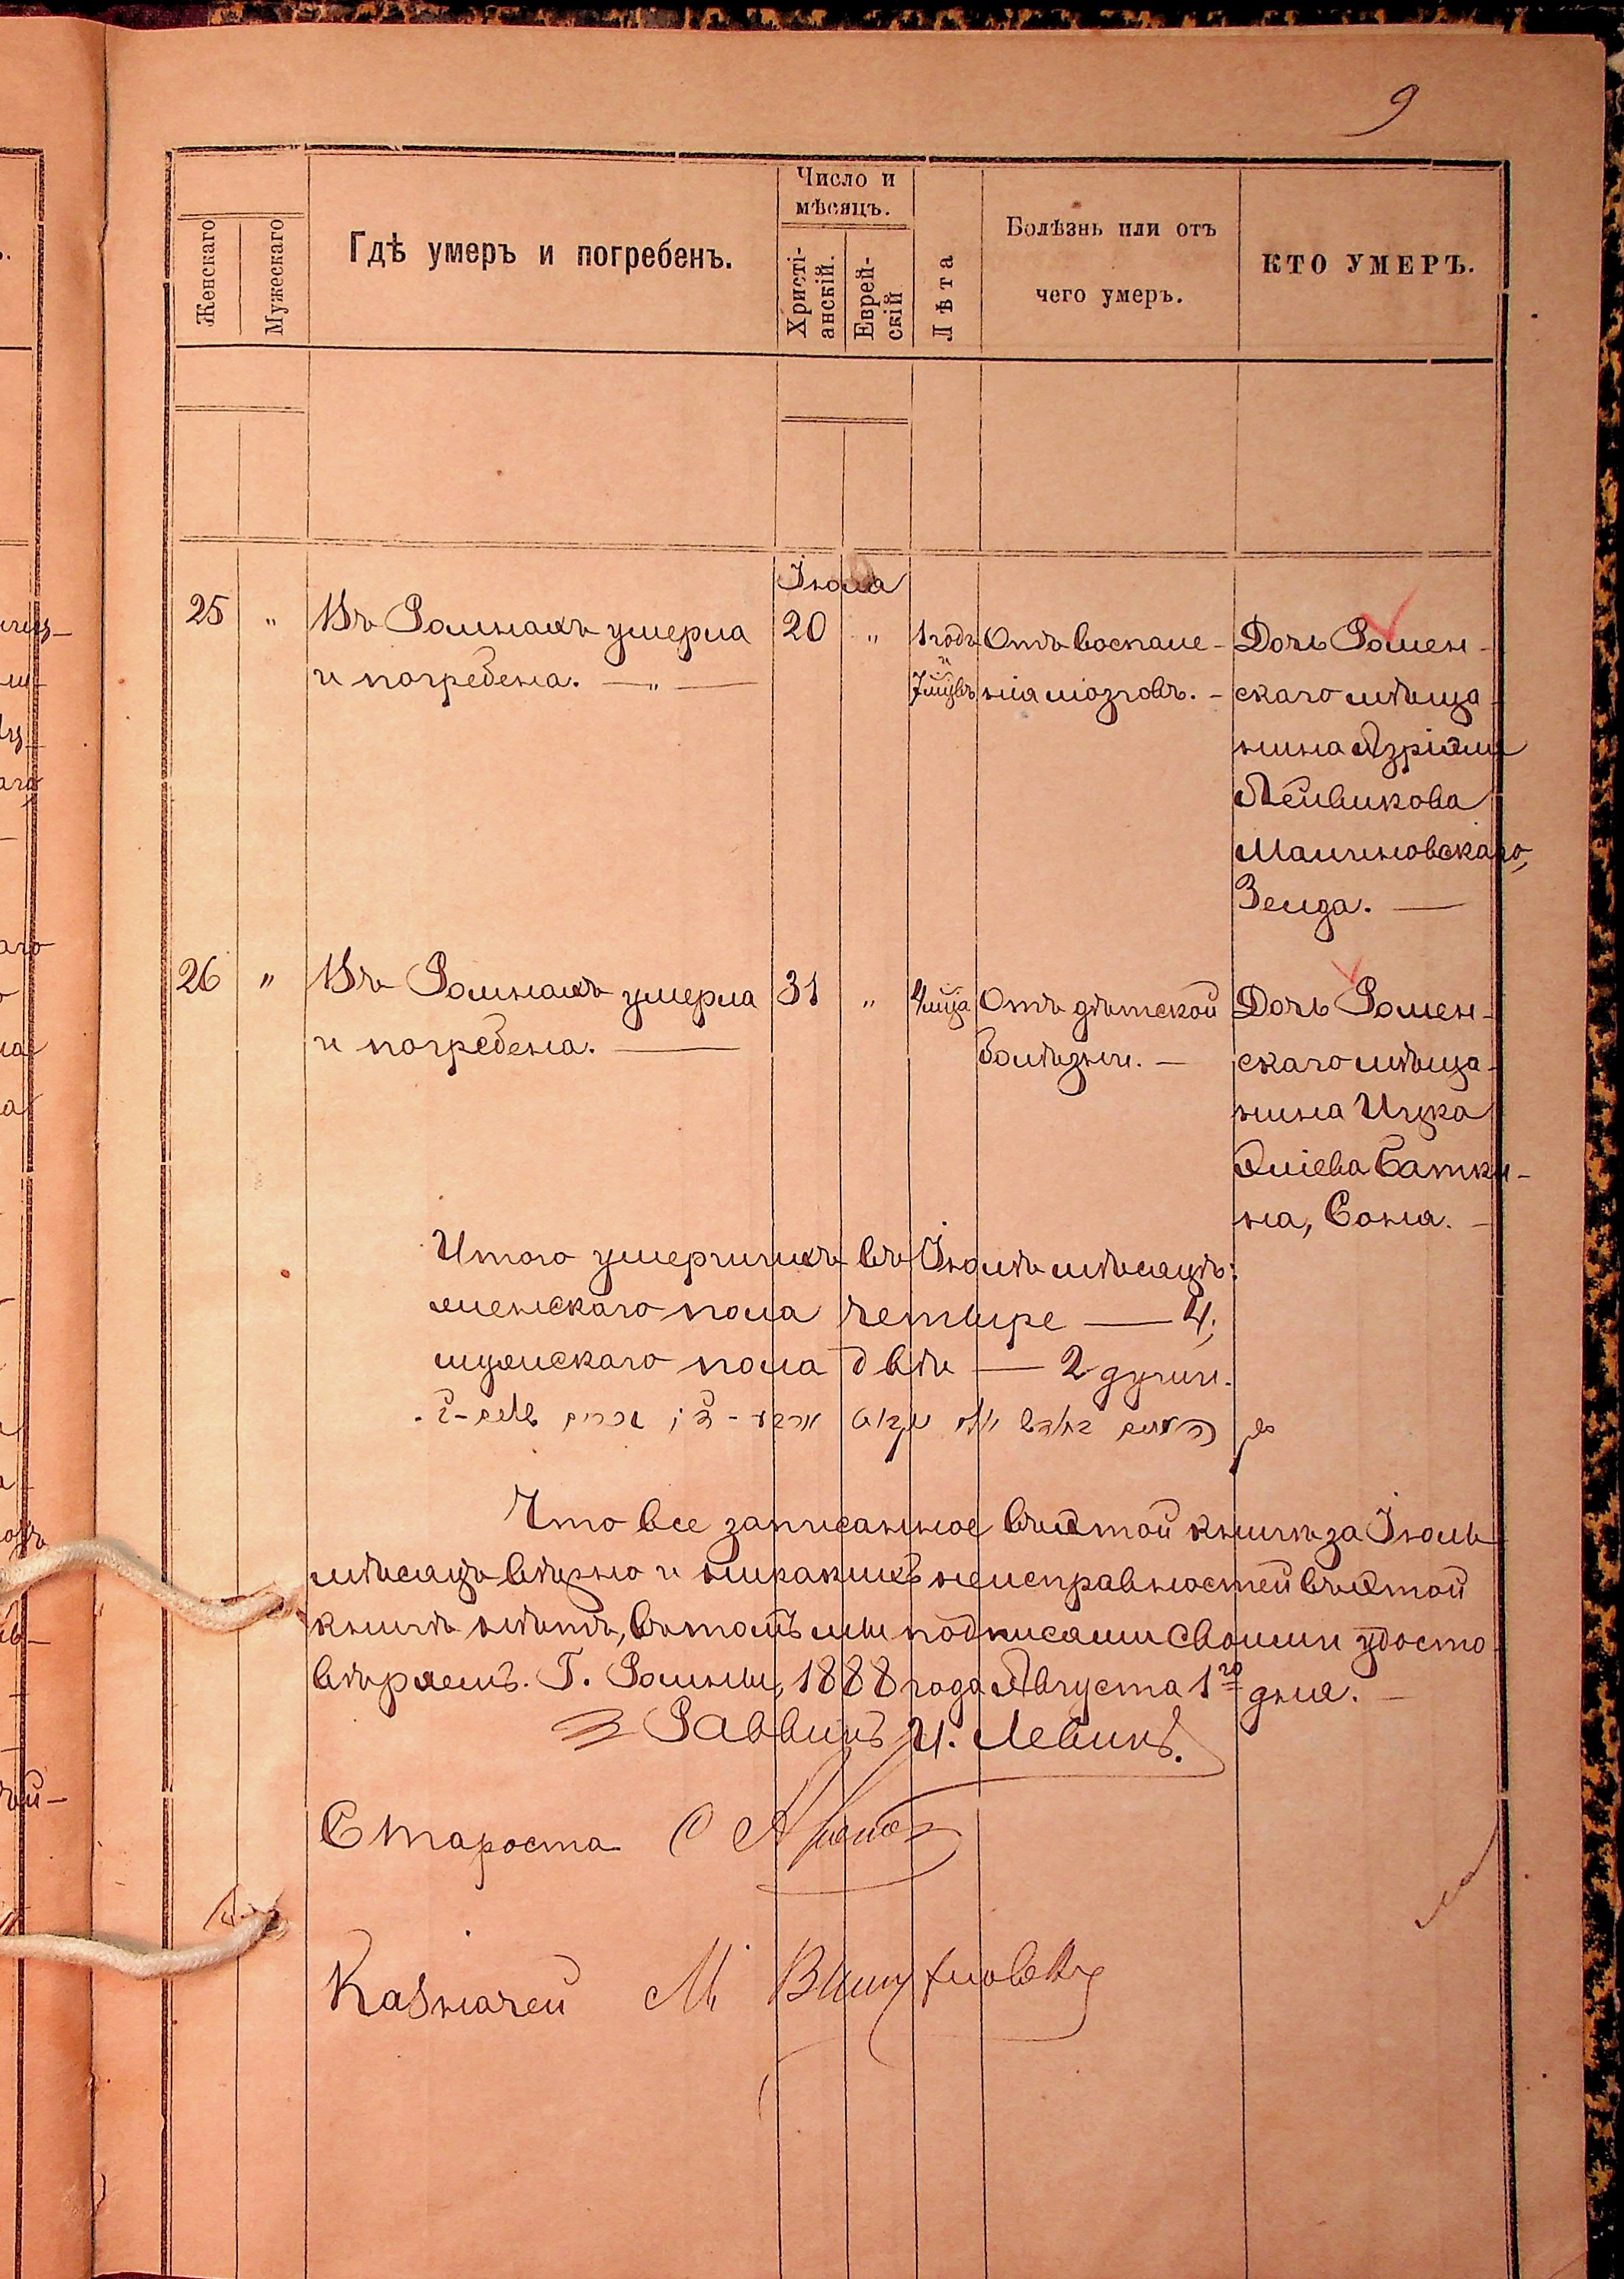 9
Женскаго
Мужескаго
Гдѣ умеръ и погребенъ.
Число и
мѣсяцъ.
Христі-
анскій.
Еврей-
скій
Лѣта
Болѣзнь или отъ
чего умеръ.
КТО УМЕРЪ.
Іюля
25 " Въ Ромнахъ умерла 20 " 1 годъ Отъ воспале- Дочь Ромен-
и погребена. — " — и 7 мцвъ нія мозговъ. - скаго мѣща-
нина Азріэля
Лейвикова
Малиновскаго,
Зелда. —
26 " Въ Ромнахъ умерла 31 " 4 мца Отъ дѣтской Дочь Ромен-
и погребена. — болѣзни. — скаго мѣща-
нина Ицка
Эліева Батки-
на, Соня. -
Итого умершихъ въ Іюлѣ мѣсяцѣ:
женскаго пола четыре — 4;
мужскаго пола двѣ — 2 души.
Что все записанное въ этой книгѣ за Іюль
мѣсяцъ вѣрно и никакихъ неисправностей въ этой
книгѣ нѣтъ, въ томъ мы подписами своими удосто-
вѣряемъ. Г. Ромны, 1888 года Августа 1го дня. -
Раввинъ И. Левинъ.
Староста
Казначей М